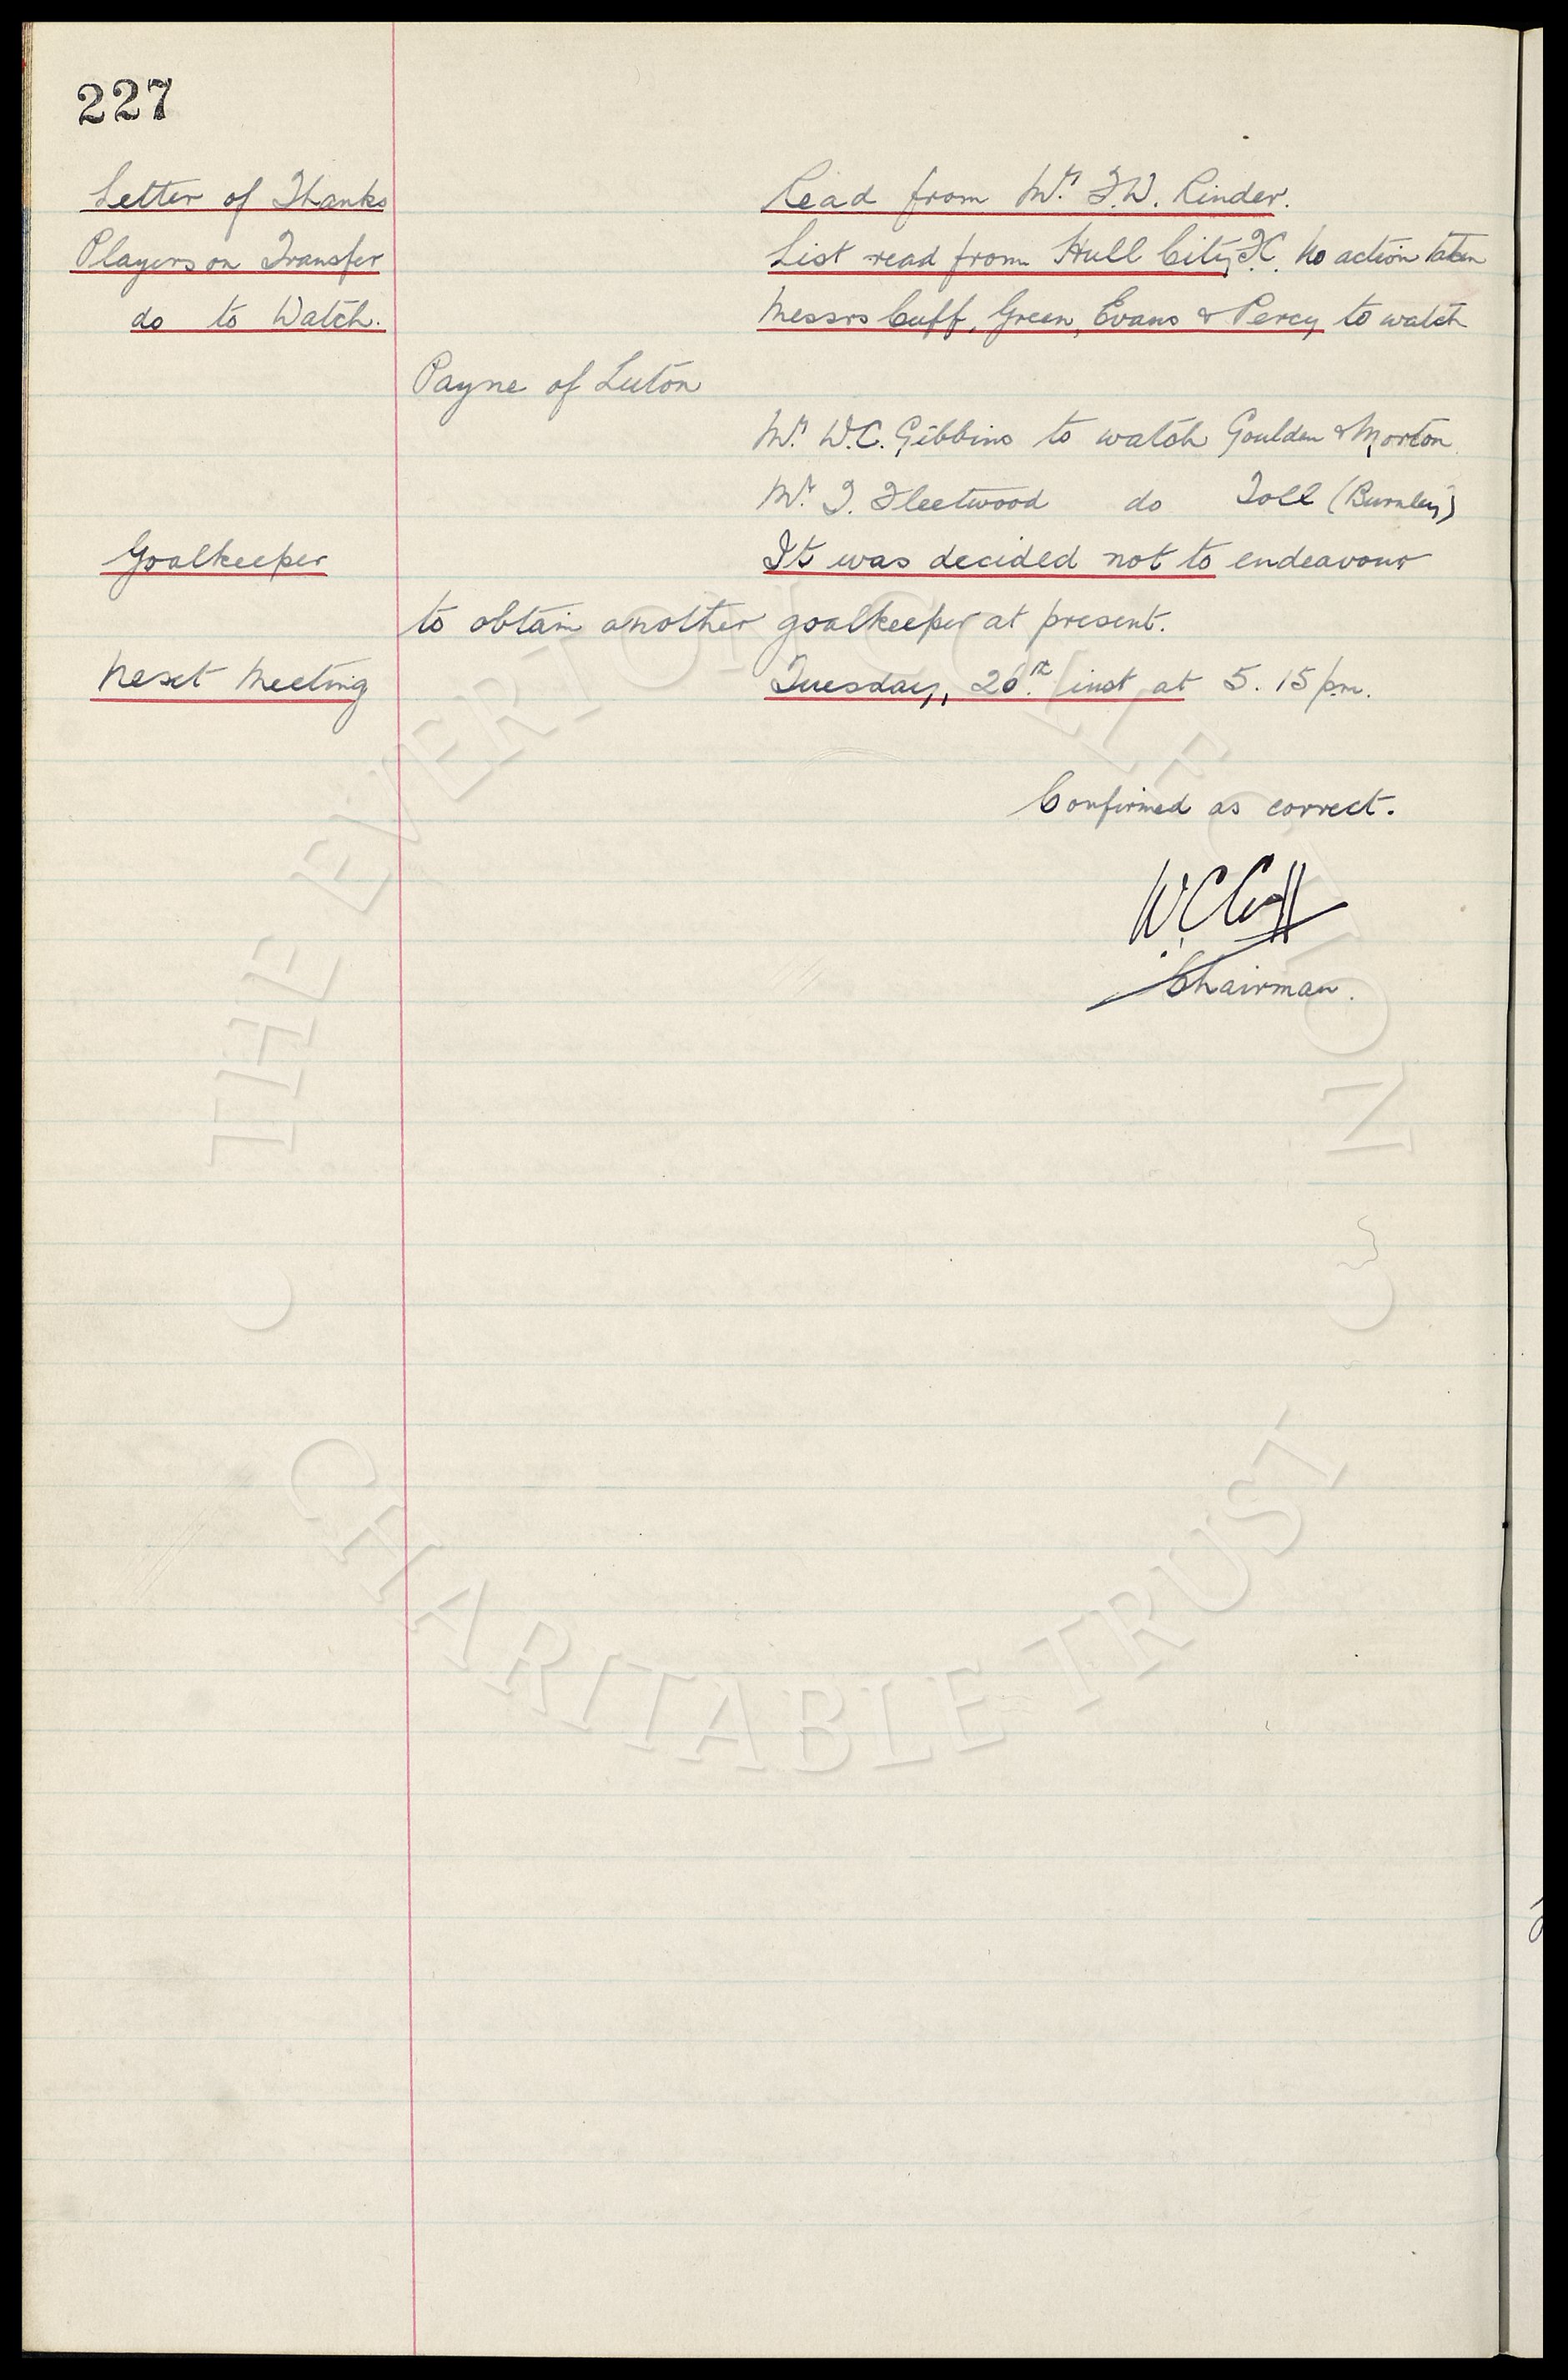 227
Letter of Thanks Read from Mr. F.W. Rinder.
Players on Transfer List read from Hull City F.C. No action taken
do to Watch. Messrs Cuff, Green, Evans & Percy to watch
Payne of Luton
Mr. W.C. Gibbins to watch Goulden & Morton.
Mr. T. Fleetwood do Toll (Burnley)
Goalkeeper It was decided not to endeavour
to obtain another goalkeeper at present.
Next Meeting Tuesday, 26th inst at 5.15 pm.
Confirmed as correct.
W.C. Cuff
Chairman.
THE EVERTON COLLECTION
CHARITABLE TRUST